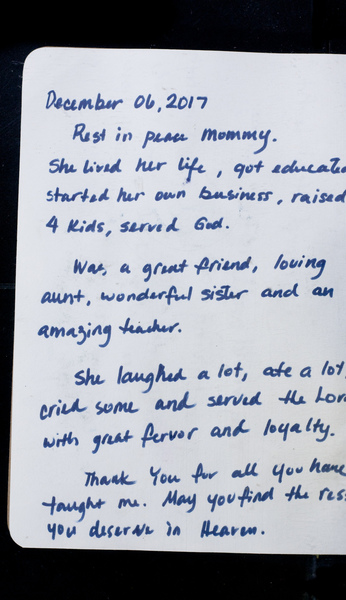 December 06, 2017
Rest in peace mommy.
She lived her life, got educated
started her own business, raised
4 kids, served God.
Was, a great friend, loving
aunt, wonderful sister and an
amazing teacher.
She laughed a lot, ate a lot,
cried some and served the Lord
with great fervor and loyalty.
Thank You for all you have
taught me. May you find the res
you deserve in Heaven.